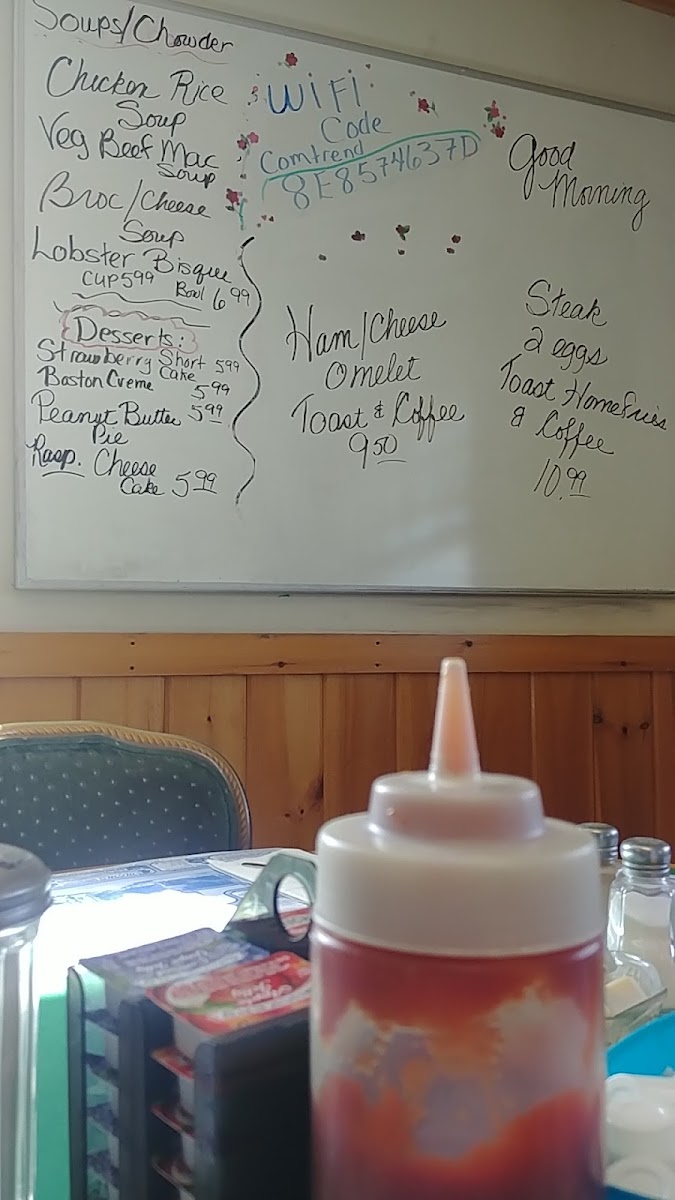 Soups/Chowder
Chicken Rice
Soup
Veg Beef Mac
Soup
Broc/Cheese
Soup
Lobster Bisque
CUP 5 99
Bowl 6 99
Desserts:
Strawberry Short 5 99
Cake
Boston Creme 5 99
Peanut Butter 5 99
Pie
Rasp. Cheese
Cake 5 99
WiFi
Code
Comtrend
8E8574637D
Ham/Cheese
Omelet
Toast & Coffee
9 50
Good
Morning
Steak
2 eggs
Toast HomeFries
& Coffee
10.99